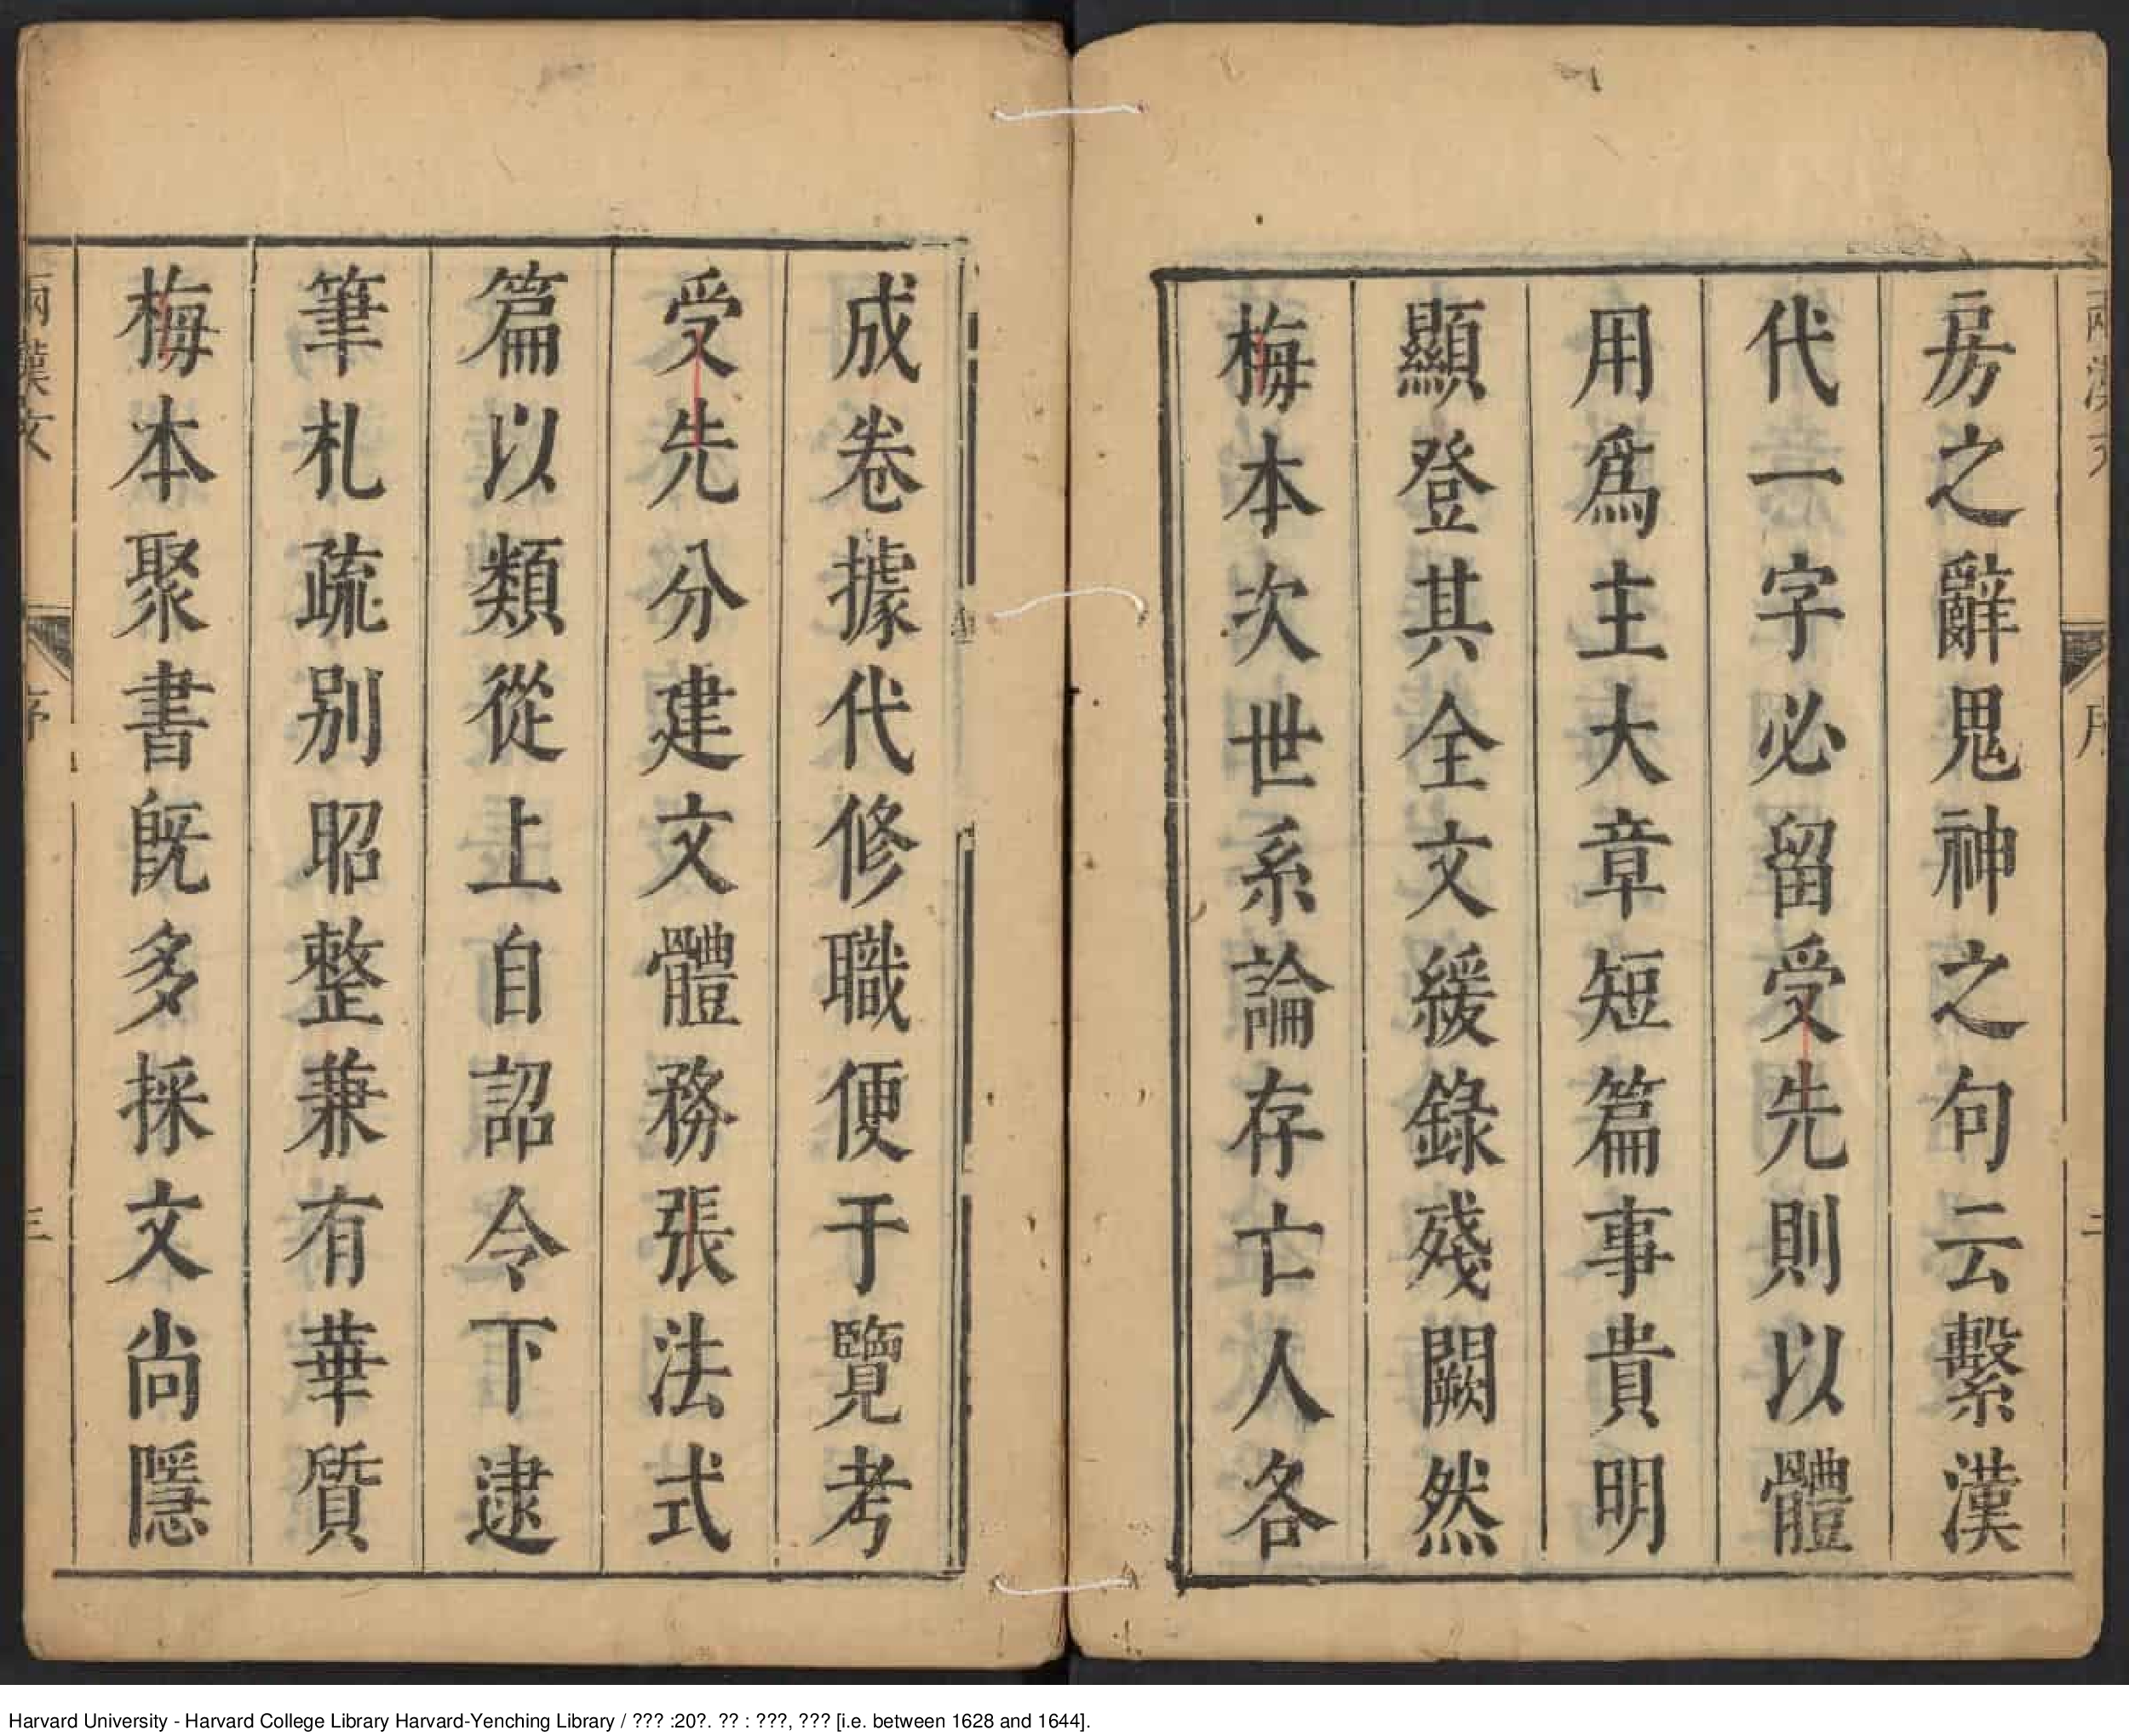 房之辭鬼神之句云繫漢
代一字必留受先則以體
用爲主大章短篇事貴明
顯登其全文緩錄殘闕然
梅本次世系論存亡人各
成卷據代修職便于覽考
受先分建文體務張法式
篇以類從上自詔令下逮
筆札疏别昭整兼有華質
梅本聚書旣多採文尚隱
兩漢文
序
三
Harvard University - Harvard College Library Harvard-Yenching Library / ??? :20?. ?? : ???, ??? [i.e. between 1628 and 1644].